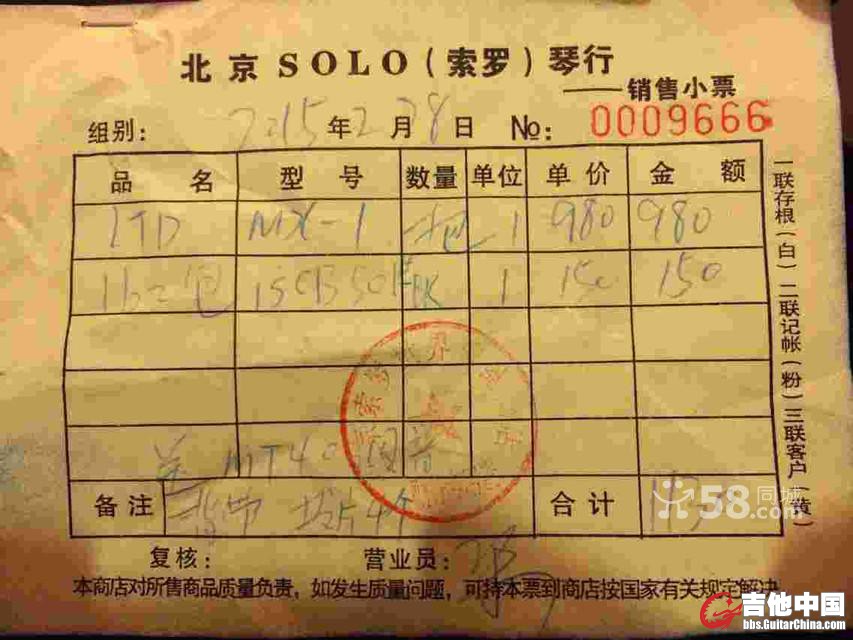 北京SOLO(索罗)琴行
——销售小票
组别: 2015年2月28日 №: 0009666
品名 型号 数量 单位 单价 金额
LTD MX-1 把 1 980 980
包 1 150 150
MT40
备注 背带 拨片4个 合计
复核: 营业员:
本商店对所售商品质量负责，如发生质量问题，可持本票到商店按国家有关规定解决
一联存根(白)二联记帐(粉)三联客户(黄)
58同城
吉他中国
bbs.GuitarChina.com